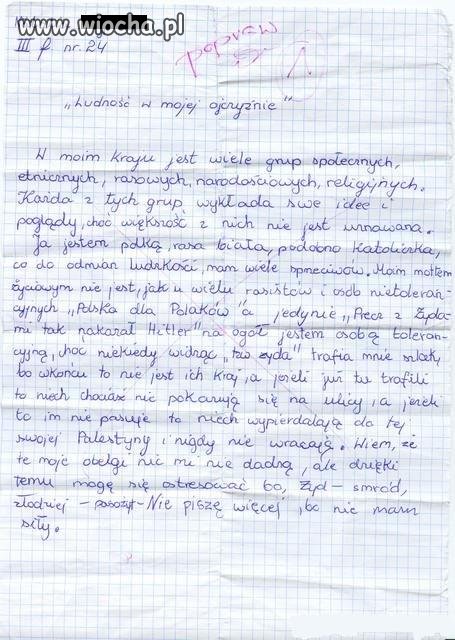 www.wiocha.pl
III f nr. 24
popraw
"Ludność w mojej ojczyźnie"
W moim kraju jest wiele grup społecznych,
etnicznych, rasowych, narodościowych, religijnych.
Każda z tych grup wykłada swe idee i
poglądy, choć większość z nich nie jest uznawana.
Ja jestem polką, rasa biała, podobno Katoliczka,
co do odmian ludzkości, mam wiele sprzeciwów. Moim mottem
życiowym nie jest, jak u wielu rasistów i osób nietoleran-
cyjnych "Polska dla Polaków" a jedynie "Precz z Żyda-
mi tak nakazał Hitler" na ogół jestem osobą toleran-
cyjną, choć niekiedy widząc "tzw żyda" trafia mnie szlak,
bo wkońcu to nie jest ich kraj, a jeżeli już tu trafili
to niech chociaż nie pokazują się na ulicy, a jeżeli
to im nie pasuje to niech wypierdalają do tej
swojej Palestyny i nigdy nie wracają. Wiem, że
te moje obelgi nic mi nie dadzą, ale dzięki
temu mogę się odstresować bo, Żyd - smród,
złodziej - pasożyt - Nie piszę więcej, bo nie mam
siły.